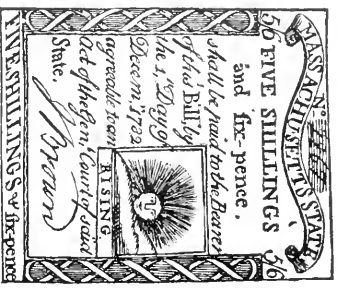 MASSACHUSETTS STATE
No.
5/6 FIVE SHILLINGS 5/6
and six-pence,
shall be paid to the Bearer
of this Bill by
the 1st Day of
Decem. 1782
agreeable to an
Act of the Gen. Court of said
State.
J Brown
RISING
FIVE SHILLINGS & six-pence